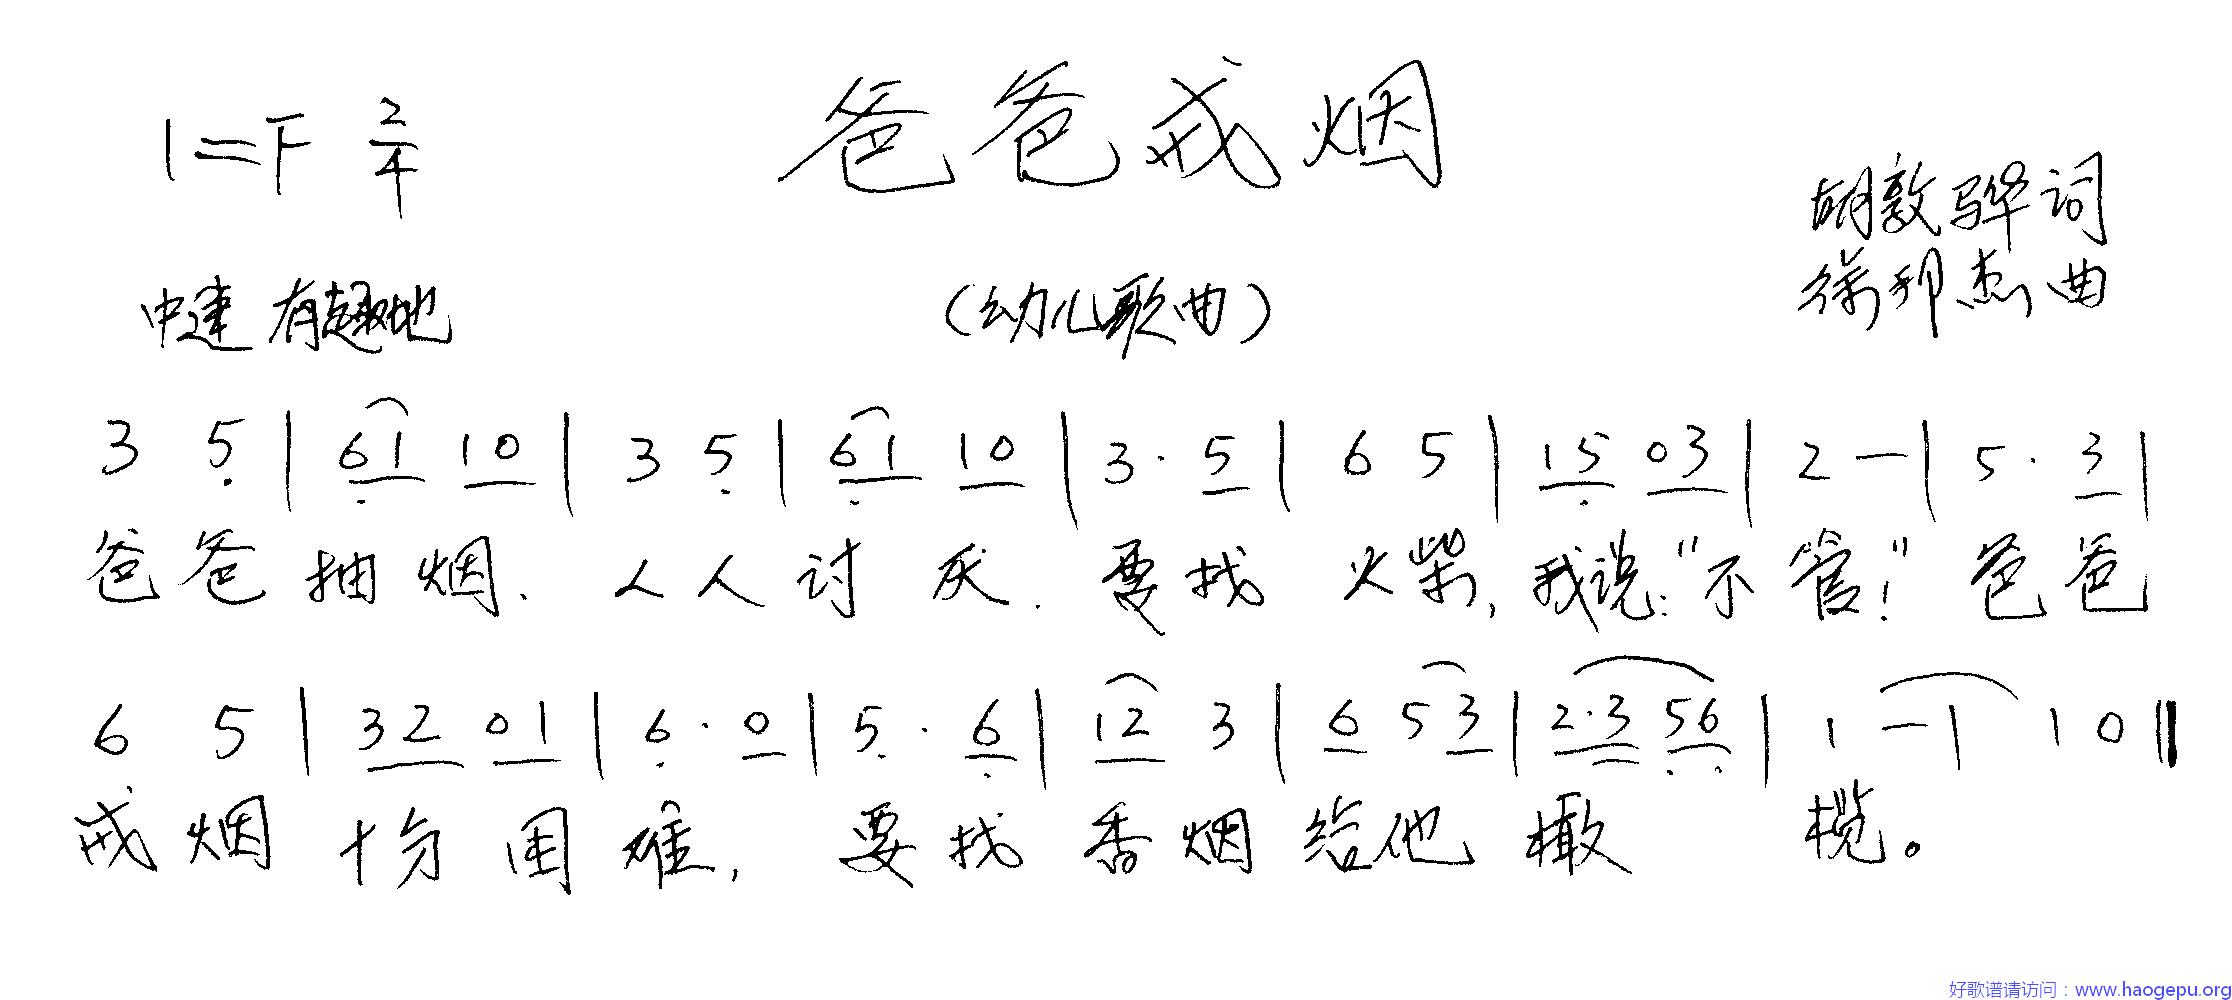 爸爸戒烟
1=F 2/4
胡敦骅词
中速 有趣地
(幼儿歌曲)
徐邦杰曲
3 5 | 61 10 | 3 5 | 61 10 | 3· 5 | 6 5 | 15 03 | 2 — | 5· 3 |
爸爸抽烟、人人讨厌.要找火柴,我说:"不管!"爸爸
6 5 | 32 01 | 6· 0 | 5· 6 | 12 3 | 6 53 | 2·3 56 | 1 — | 1 0 ‖
戒烟十分困难,要找香烟给他橄榄。
好歌谱请访问:www.haogepu.org